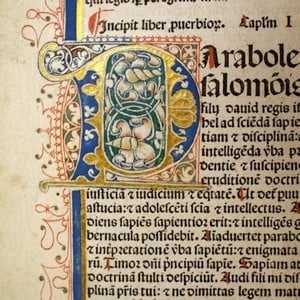 Incipit liber ꝓuerbior. Caplm I
Parabole
salomōis
filij dauid regis is
hel ad sciēdā sapiē
tiam & disciplinā:
intelligēda v̄ba p
dentie & suscipien
eruditionē doctrin
iusticiā & iudiciū & eqtatē. Ut det puu
astucia: & adolescēti scīa & intellectus. A
diens sapiēs sapientior erit: & intelligēs g
bernacula possidebit. Aīaduertet parabo
& īterpretationē v̄ba sapiētū: & enigmata
rū. Timor dn̄i pncipiū sapiē. Sapiam a
doctrinā stulti despiciūt. Audi fili mi di
plinā pr̄is tui: & ne dimittas legem mat